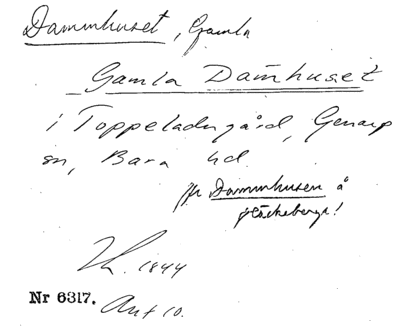 Dammhuset, Gamla
Gamla Damhuset
i Toppeladugård, Genarp
sn, Bara hd.
jfr Dammhusen å
Häckeberga!
1844
Nr 6317. Ant 10.